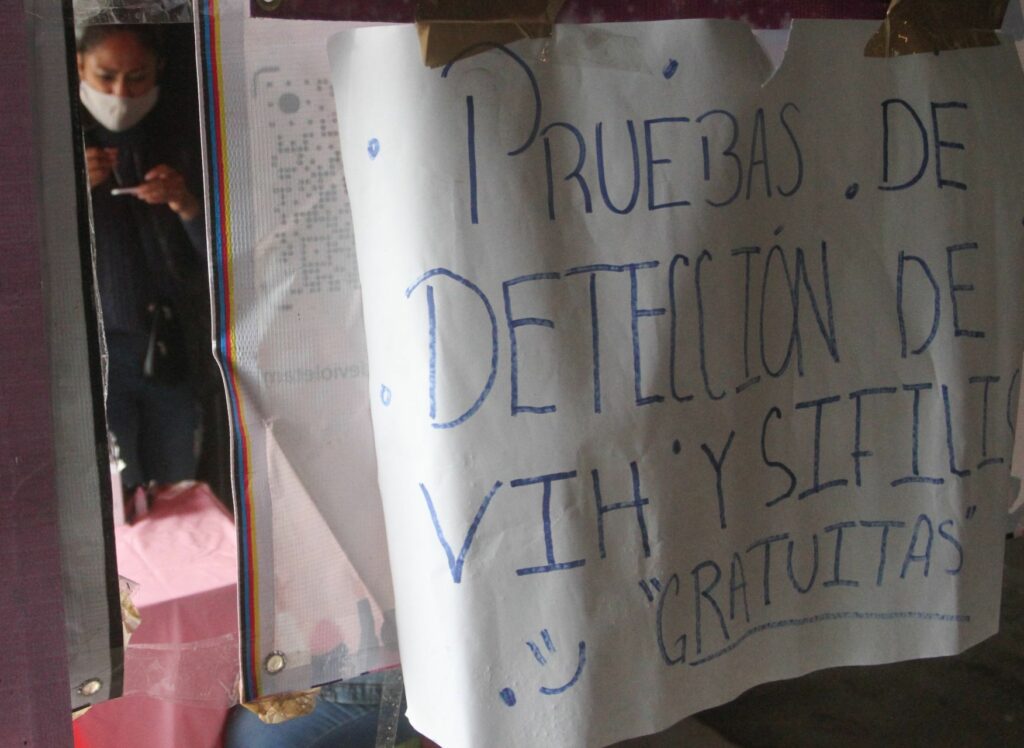 PRUEBAS DE
DETECCIÓN DE
VIH Y SIFILIS
"GRATUITAS"